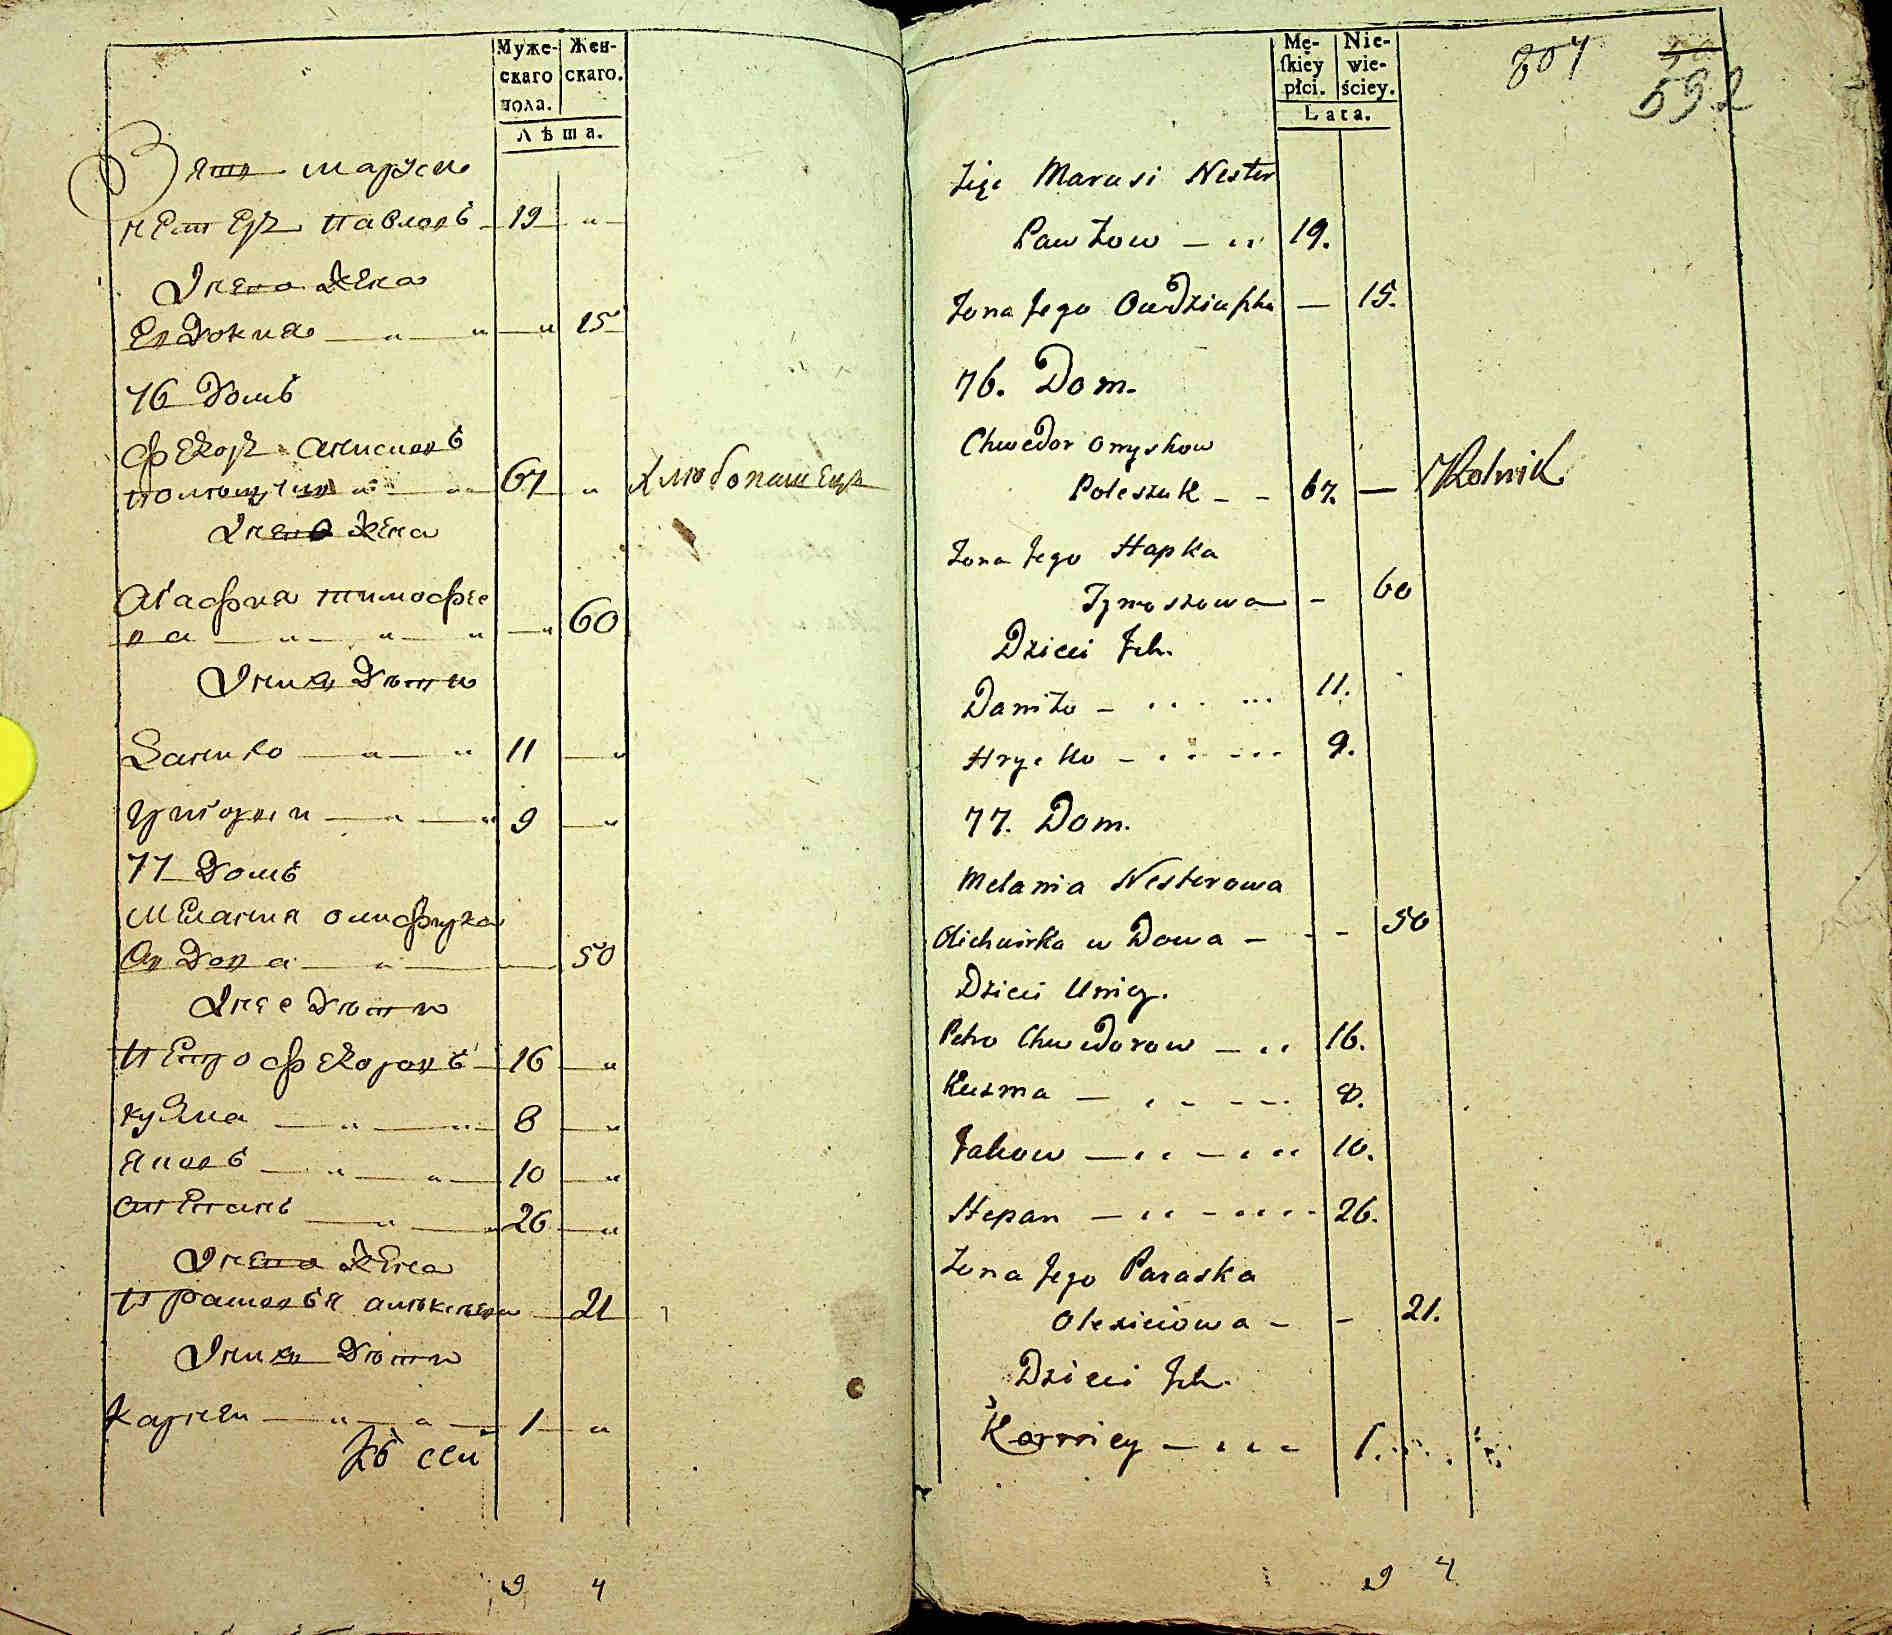 Муже-
скаго
пола.
Жен-
скаго.
Лѣта.
Зять Маруси
Нестеръ Павловъ 19 "
І него жена
Евдокия " " " 15
76 Домъ
Федоръ Анисмовъ
" " 67 " Хлѣбопашецъ
І него жена
Агафия Тимофее
ва " " " " 60
І нихъ дѣти
Данило " " 11 "
Григорей " " 9 "
77 Домъ
Мелания
Вдова " 50
І нее дѣти
Петро Федоровъ 16 "
Кузма " " 8 "
Яковъ " " 10 "
Степанъ " " 26 "
І него жена
Прасковья 21
І нихъ дѣти
Карней " " 1 "
9 4
Mę-
skiey
płci.
Nie-
wie-
ściey.
Lata.
807
592
Zięć Marusi Nester
Pawłow 19.
Żona Jego Oudziuszka 15.
76. Dom.
Chwedor Onyskow
Poleszuk 67. Rolnik
Żona Jego Hapka
Tymoszowa 60
Dzieci Ich.
Daniło 11.
Hryćko 9.
77. Dom.
Melania Nesterowa
Olichwirka wdowa 50
Dzieci Unieÿ.
Petro Chwedorow 16.
Kuzma 8.
Jakow 10.
Stepan 26.
Żona Jego Paraska
Olexiciowa 21.
Dzieci Ich.
Korniey 1.
9 4